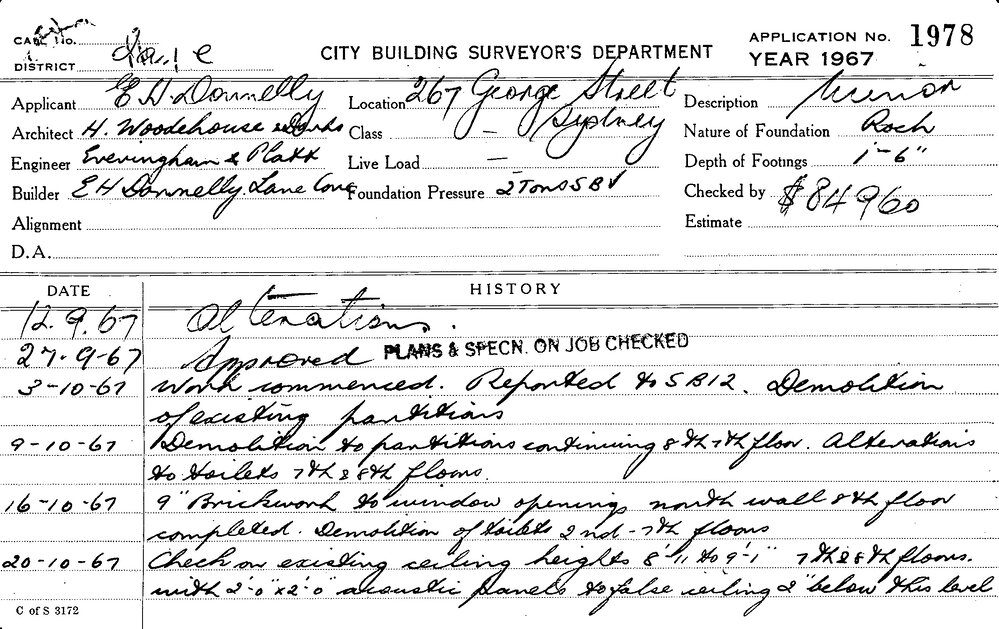 CARD No.
CITY BUILDING SURVEYOR'S DEPARTMENT
APPLICATION No. 1978
DISTRICT
YEAR 1967
Applicant E H Donnelly Location 267 George Street Description Minor
Sydney
Architect H. Woodehouse & Danks Class — Nature of Foundation Rock
Engineer Eveningham & Platt Live Load — Depth of Footings 1'-6"
Builder E H Donnelly. Lane Cove Foundation Pressure 2 Tons S B Checked by $84960
Alignment Estimate
D.A.
DATE HISTORY
12.9.67 Alterations.
27-9-67 Approved PLANS & SPECN. ON JOB CHECKED
3-10-67 Work commenced. Reported to SB12. Demolition
of existing partitions
9-10-67 Demolition to partitions continuing 8th 7th floor. Alterations
to toilets 7th & 8th floors.
16-10-67 9" Brickwork to window openings north wall 8th floor
completed. Demolition of toilets 2nd - 7th floors
20-10-67 Check on existing ceiling heights 8'-11 to 9'-1" 7th & 8th floors.
with 2'-0" x 2'-0" acoustic panels to false ceiling 2" below this level
C of S 3172